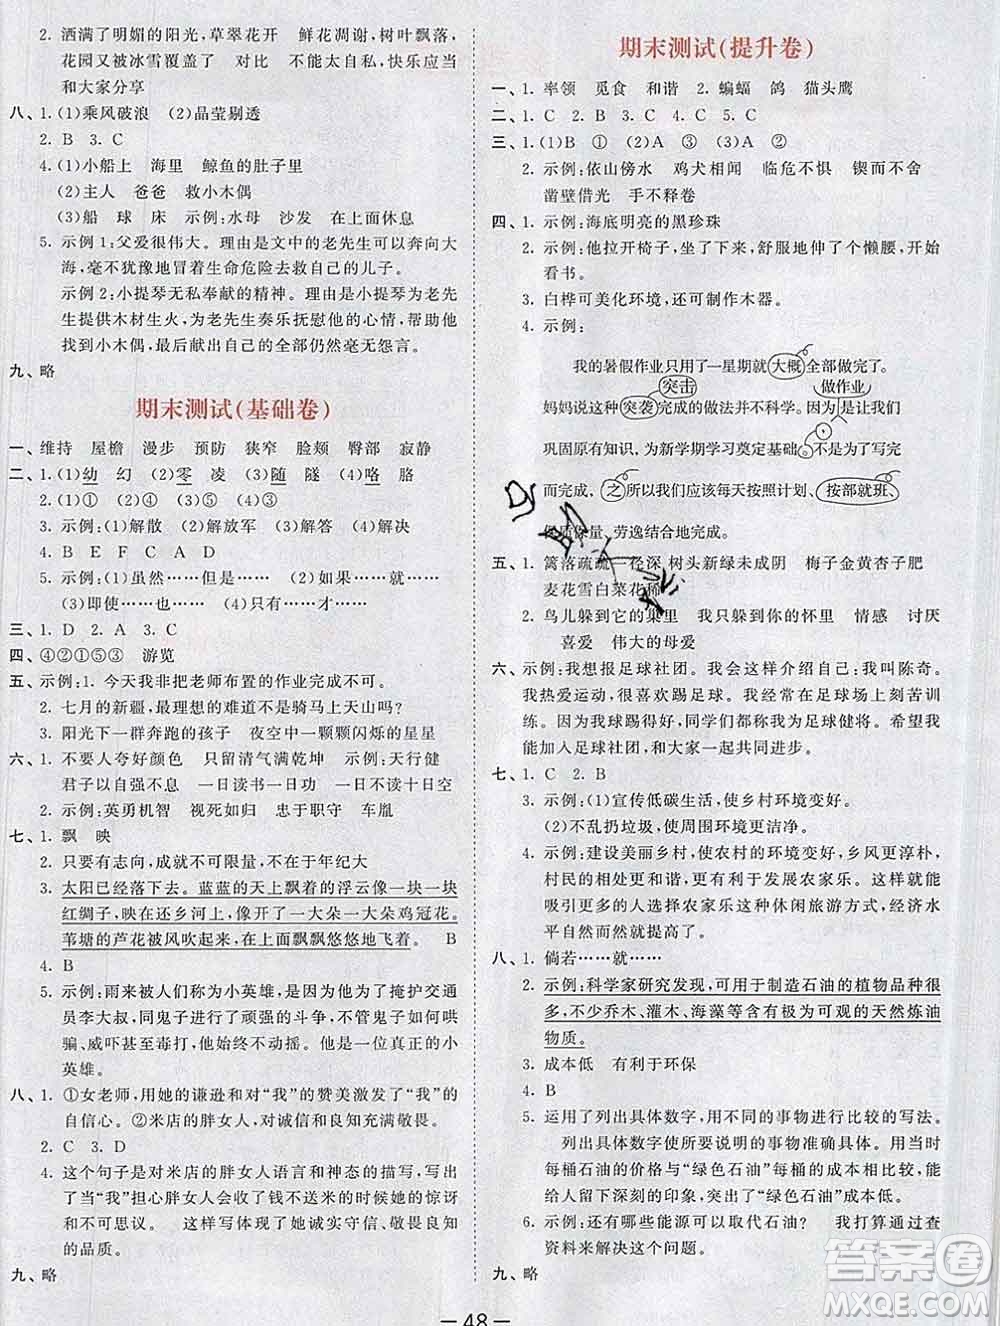 2. 洒满了明媚的阳光，草翠花开　鲜花凋谢，树叶飘落，
花园又被冰雪覆盖了　对比　不能太自私，快乐应当
和大家分享
八、1. (1)乘风破浪　(2)晶莹剔透
2. B　3. C
4. (1)小船上　海里　鲸鱼的肚子里
(2)主人　爸爸　救小木偶
(3)船　球　床　示例：水母　沙发　在上面休息
5. 示例1：父爱很伟大。理由是文中的老先生可以奔向大
海，毫不犹豫地冒着生命危险去救自己的儿子。
示例2：小提琴无私奉献的精神。理由是小提琴为老先
生提供木材生火，为老先生奏乐抚慰他的心情，帮助他
找到小木偶，最后献出了自己的全部仍然毫无怨言。
九、略
期末测试（基础卷）
一、维持　屋檐　漫步　预防　狭窄　脸颊　臀部　寂静
二、1. (1)幼　幻　(2)零　凌　(3)随　隧　(4)略　胳
2. (1)①　(2)④　(3)⑤　(4)②
3. 示例：(1)解散　(2)解放军　(3)解答　(4)解决
4. B　E　C　F　A　D
5. 示例：(1)虽然……但是……　(2)如果……就……
(3)即使……也……　(4)只有……才……
三、1. D　2. A　3. C
四、④②①⑤③　游览
五、示例：1. 今天我非把老师布置的作业完成不可。
2. 七月的新疆，最理想的难道不是骑马上天山吗？
3. 阳光下一群奔跑的孩子　夜空中一颗颗闪烁的星星
六、1. 不要人夸好颜色　只留清气满乾坤　示例：天行健
君子以自强不息　一日读书一日功　一日不读十日空
2. 示例：英勇机智　视死如归　忠于职守　车胤
七、1. 飘　映
2. 只要有志向，成就不可限量，不在于年纪大
3. 太阳已经落下去。蓝蓝的天上飘着的浮云像一块一块
红绸子，映在还乡河上，像开了一大朵一大朵鸡冠花。
苇塘的芦花被风吹起来，在上面飘飘悠悠地飞着。　B
4. B
5. 示例：雨来被人们称为小英雄，因为他为了掩护交通
员李大叔，同鬼子进行了顽强的斗争，不管鬼子如何哄
骗、威吓甚至毒打，他始终没有屈服。他是一位真正的小
英雄。
八、1. ①女老师，用她的谦逊和对“我”的赞美激发了“我”的
自信心。　②米店的胖女人，对诚信和良知充满敬畏。
2. C　3. D
4. 这个句子是对米店的胖女人语言和神态的描写，写出
了当“我”担心胖女人会收了钱不送米的时候她的惊讶
和不可思议。　这样写体现了她诚实守信、敬畏良知
的品质。
九、略
期末测试（提升卷）
一、1. 率领　觅食　和谐　2. 蝙蝠　鸽　猫头鹰
二、1. C　2. B　3. B　4. C　5. C
三、1. (1)B　①　(2)A　③　(3)A　②
2. 示例：依山傍水　鸡犬相闻　临危不惧　锲而不舍
凿壁借光　手不释卷
四、1. 示例：海底明亮的黑珍珠
2. 示例：他拉开椅子，坐了下来，舒服地伸了个懒腰，开始
看书。
3. 白桦可美化环境，还可制作木器。
4. 示例：
我的暑假作业只用了一星期就大概全部做完了。
突击　做作业
妈妈说这种突袭完成的做法并不妥当。因为是让我们
巩固原有知识，为新学期学习奠定基础。不是为了写完
而完成，之所以我们应该每天按照计划、按部就班、
保质保量、劳逸结合地完成。
五、1. 篱落疏疏一径深，树头新绿未成阴　梅子金黄杏子肥
麦花雪白菜花稀
2. 鸟儿躲到它的巢里　我只躲到你的怀里　情感　讨厌
喜爱　伟大的母爱
六、示例：我想报足球社团。我会这样介绍自己：我叫陈奇。
我热爱运动，很喜欢踢足球。我经常在足球场上刻苦训
练。因为我球踢得好，同学们都称我为足球健将。希望我
能加入足球社团，和大家一起共同进步。
七、1. C　2. B
3. 示例：(1)宣传低碳生活，使乡村环境变好。
(2)不乱扔垃圾，使周围环境更洁净。
4. 示例：建设美丽乡村，使农村的环境变好，乡风更淳朴，
村民的相处更和谐，更有利于发展农家乐。这样就能
吸引更多的人选择农家乐这种休闲旅游方式，经济水
平自然而然就提高了。
八、1. 倘若……就……
2. 示例：科学家研究发现，可用于制造石油的植物品种很
多，不少乔木、灌木、海藻等含有极为可观的天然炼油
物质。
3. 成本低　有利于环保
4. B
5. 运用了列出具体数字，用不同的事物进行比较的写法。
列出具体数字使所要说明的事物准确具体。用
每桶石油的价格与“绿色石油”每桶的成本相比较，能
给人留下深刻的印象，突出了“绿色石油”成本低。
6. 示例：还有哪些能源可以取代石油？　我打算通过查
资料来解决这个问题。
九、略
— 48 —
答案圈
MXQE.COM